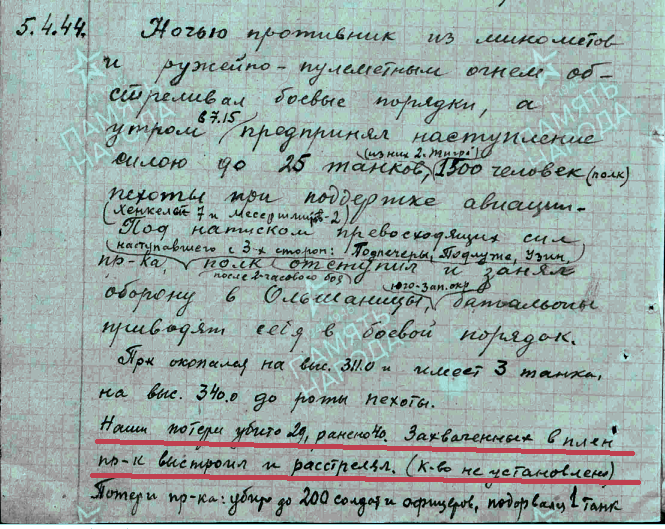 5.4.44. Ночью противник из минометов
и ружейно-пулеметным огнем об-
стреливал боевые порядки, а
в 7.15
утром предпринял наступление
(из них 2 "Тигр")
силою до 25 танков, 1500 человек (полк)
пехоты при поддержке авиации.
(Хенкелей 7 и Мессершмит-2)
Под натиском превосходящих сил
наступавшего с 3-х сторон: Подпечеры, Подлуже, Узин,
пр-ка, полк отступил и занял
после 2-часового боя юго-зап. окр
оборону в Ольшаницы, батальоны
приводят себя в боевой порядок.
Пр-к окопался на выс. 311.0 и имеет 3 танка,
на выс. 340.0 до роты пехоты.
Наши потери убито 29, ранено 40. Захваченных в плен
пр-к выстроил и расстрелял. (к-во не установлено)
Потери пр-ка: убито до 200 солдат и офицеров, подорвали 1 танк
ПАМЯТЬ НАРОДА
ПАМЯТЬ НАРОДА
ПАМЯТЬ НАРОДА